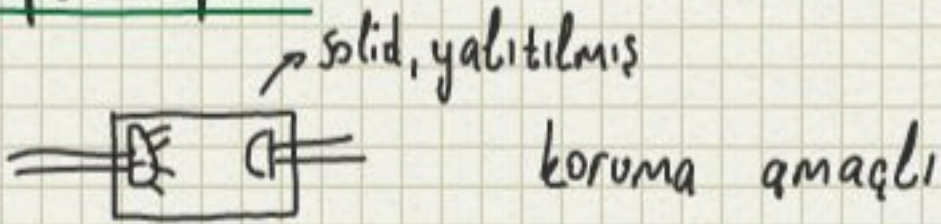 solid, yalıtılmış
koruma amaçlı